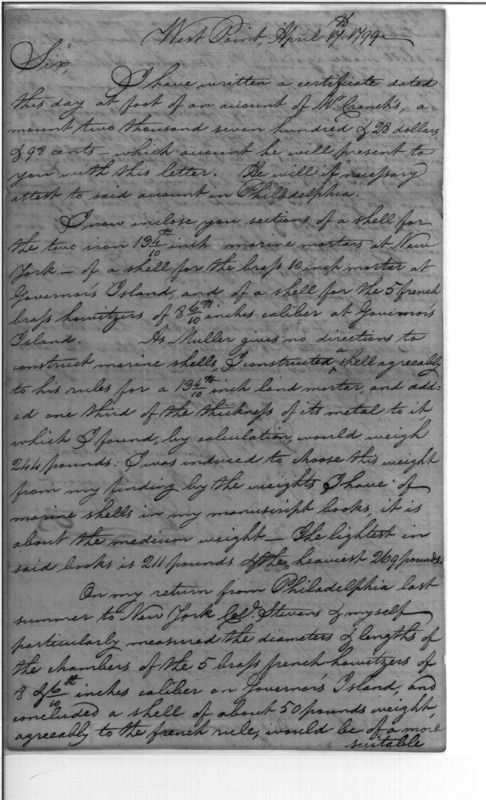 West Point, April 17th 1799
Sir,
I have written a certificate dated
this day at foot of an account of Mr Cranch's, a-
mount two thousand seven hundred & 28 dollars
& 98 cents – which account he will present to
you with this letter. He will if necessary
attest to said account in Philadelphia.
I now inclose you sections of a shell for
the two iron 13 th/10 inch marine mortars at New
York – of a shell for the brass 10 inch mortar at
Governor's Island, and of a shell for the 5 french
brass howitzers of 8 6th/10 inches caliber at Governor's
Island. As Muller gives no directions to
construct marine shells, I constructed a shell agreeably
to his rules for a 13 th/10 inch land mortar, and add-
ed one third of the thickness of its metal to it
which I found, by calculation, would weigh
244 pounds: I was induced to choose this weight
from my finding by the weights I have of
marine shells in my manuscript books, it is
about the medium weight – The lightest in
said books is 211 pounds & the heaviest 269 pounds.
On my return from Philadelphia last
summer to New York Col. Stevens & myself
particularly measured the diameters & lengths of
the chambers of the 5 brass french howitzers of
8 & 6th/10 inches caliber on Governor's Island, and
concluded a shell of about 50 pounds weight,
agreeably to the french rule, would be of a more
suitable